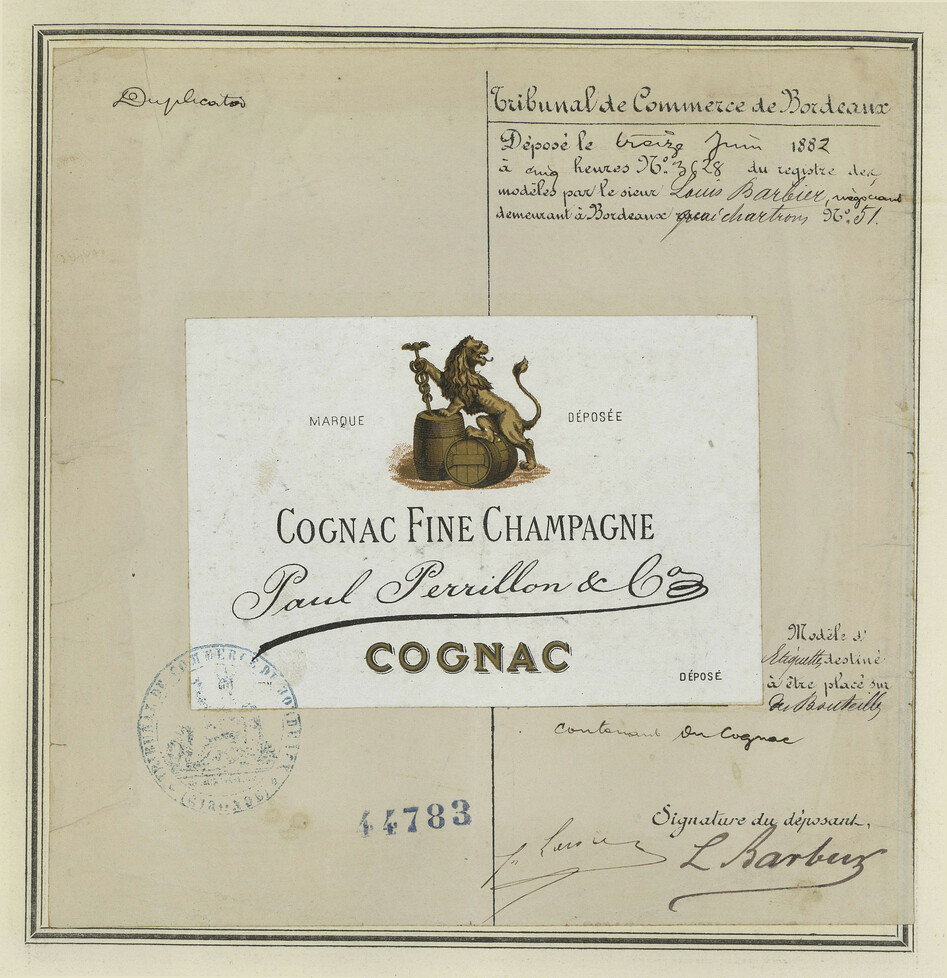 Duplicata
Tribunal de Commerce de Bordeaux
Déposé le treize Juin 1882
à cinq heures N° 3628 du registre des
modèles par le sieur Louis Barbier, négociant
demeurant à Bordeaux quai chartrons N° 51.
MARQUE DÉPOSÉE
COGNAC FINE CHAMPAGNE
Paul Perrillon & Co
COGNAC
DÉPOSÉ
Modèle d'
Etiquette, destiné
à être placé sur
des Bouteilles
contenant du Cognac
TRIBUNAL DE COMMERCE DE BORDEAUX
(GIRONDE)
44783
Signature du déposant,
L Barbier